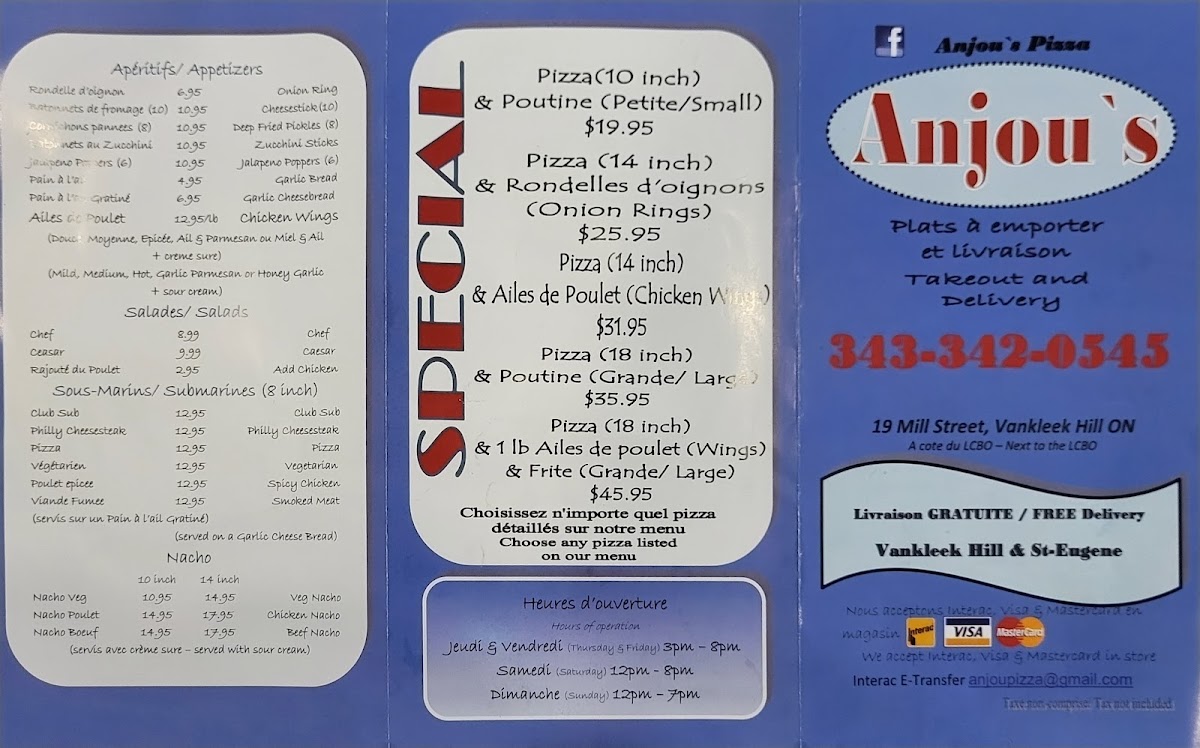 Apéritifs/ Appetizers
Rondelle d'oignon 6.95 Onion Ring
de fromage (10) 10.95 Cheesestick (10)
pannees (8) 10.95 Deep Fried Pickles (8)
au Zucchini 10.95 Zucchini Sticks
(6) 10.95 Jalapeno Poppers (6)
Pain à 4.95 Garlic Bread
Pain à Gratiné 6.95 Garlic Cheesebread
Ailes de Poulet 12.95/lb Chicken Wings
Moyenne, Epicée, Ail & Parmesan ou Miel & Ail
+ creme sure)
(Mild, Medium, Hot, Garlic Parmesan or Honey Garlic
+ sour cream)
Salades/ Salads
Chef 8.99 Chef
Ceasar 9.99 Caesar
Rajouté du Poulet 2.95 Add Chicken
Sous-Marins/ Submarines (8 inch)
Club Sub 12.95 Club Sub
Philly Cheesesteak 12.95 Philly Cheesesteak
Pizza 12.95 Pizza
Végétarien 12.95 Vegetarian
Poulet epicee 12.95 Spicy Chicken
Viande Fumee 12.95 Smoked Meat
(servis sur un Pain à l'ail Gratiné)
(served on a Garlic Cheese Bread)
Nacho
10 inch 14 inch
Nacho Veg 10.95 14.95 Veg Nacho
Nacho Poulet 14.95 17.95 Chicken Nacho
Nacho Boeuf 14.95 17.95 Beef Nacho
(servis avec crème sure – served with sour cream)
SPECIAL
Pizza(10 inch)
& Poutine (Petite/Small)
$19.95
Pizza (14 inch)
& Rondelles d'oignons
(Onion Rings)
$25.95
Pizza (14 inch)
& Ailes de Poulet (Chicken Wings)
$31.95
Pizza (18 inch)
& Poutine (Grande/ Large)
$35.95
Pizza (18 inch)
& 1 lb Ailes de poulet (Wings)
& Frite (Grande/ Large)
$45.95
Choisissez n'importe quel pizza
détaillés sur notre menu
Choose any pizza listed
on our menu
Heures d'ouverture
Hours of operation
Jeudi & Vendredi (Thursday & Friday) 3pm – 8pm
Samedi (Saturday) 12pm - 8pm
Dimanche (Sunday) 12pm – 7pm
f Anjou`s Pizza
Anjou`s
Plats à emporter
et livraison
Takeout and
Delivery
343-342-0545
19 Mill Street, Vankleek Hill ON
A cote du LCBO – Next to the LCBO
Livraison GRATUITE / FREE Delivery
Vankleek Hill & St-Eugene
Nous acceptons Interac, Visa & Mastercard en
magasin Interac VISA MasterCard
We accept Interac, Visa & Mastercard in store
Interac E-Transfer anjoupizza@gmail.com
Taxe non-comprise. Tax not included